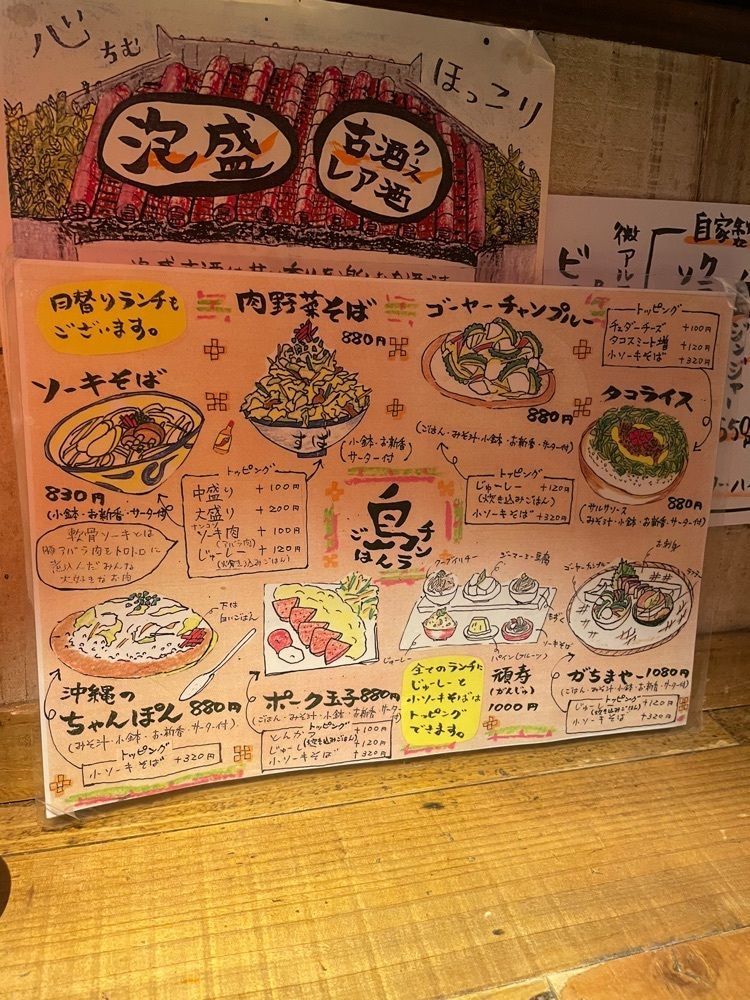 心
ちむ
ほっこり
泡盛
古酒
クース
レア酒
自家製
微アル
日替りランチも
ございます。
肉野菜そば
880円
(小鉢・お新香
サーター付)
ゴーヤーチャンプルー
880円
(ごはん・みそ汁・小鉢・お新香・サーター付)
トッピング
じゅーしー +120円
(炊き込みごはん)
小ソーキそば +320円
トッピング
チェダーチーズ +100円
タコスミート増 +120円
小ソーキそば +320円
タコライス
880円
(サルサソース
みそ汁・小鉢・お新香・サーター付)
ソーキそば
830円
(小鉢・お新香・サーター付)
軟骨ソーキとは
豚アバラ肉をトロトロに
煮込んだみんな
大好きなお肉
トッピング
中盛り +100円
大盛り +200円
ナンコツ
ソーキ肉 +100円
(アバラ肉)
じゅーしー +120円
(炊き込みごはん)
島
ごはん
ランチ
下は
白いごはん
沖縄の
ちゃんぽん 880円
(みそ汁・小鉢・お新香・サーター付)
トッピング
小ソーキそば +320円
ポーク玉子 880円
(ごはん・みそ汁・小鉢・お新香・サーター付)
トッピング
とんかつ +100円
じゅーしー(炊き込みごはん) +120円
小ソーキそば +320円
全てのランチに
じゅーしーと
小ソーキそばは
トッピング
できます。
クーブイリチー
ジーマーミー豆腐
もずく
じゅーしー
ソーキそば
パイン(フルーツ)
頑寿
(がんじゅ)
1000円
ゴーヤーチャンプルー
お刺身
がちまやー 1080円
(ごはん・みそ汁・小鉢・お新香・サーター付)
トッピング
じゅーしー +120円
(炊き込みごはん)
小ソーキそば +320円